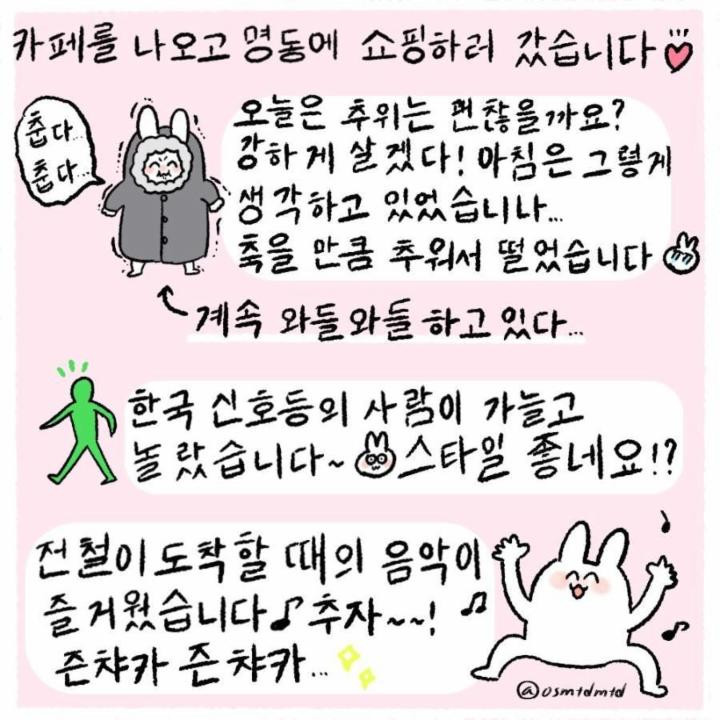 카페를 나오고 명동에 쇼핑하러 갔습니다
춥다...
춥다...
오늘은 추위는 괜찮을까요?
강하게 살겠다! 아침은 그렇게
생각하고 있었습니나...
죽을 만큼 추워서 떨었습니다
계속 와들와들 하고 있다...
한국 신호등의 사람이 가늘고
놀랐습니다~ 스타일 좋네요!?
전철이 도착할 때의 음악이
즐거웠습니다♪ 추자~~!
즌챠카 즌챠카...
@osmtdmtd